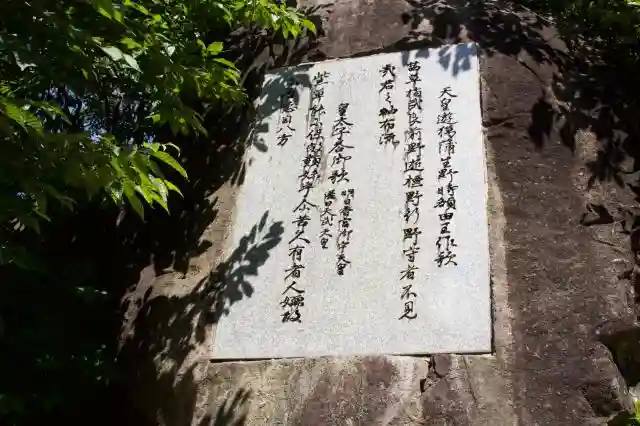 天皇遊猟蒲生野時額田王作歌
茜草指武良前野逝標野行野守者不見
哉君之袖布流
皇太子答御歌
明日香宮御宇天皇
謚曰天武天皇
紫草能尓保敝類妹乎尓苦久有者人嬬故
戀目八方